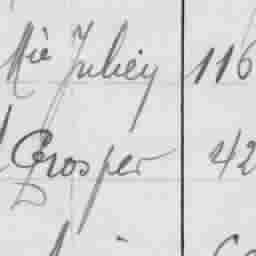 Mie Juliey 116
Prosper 42